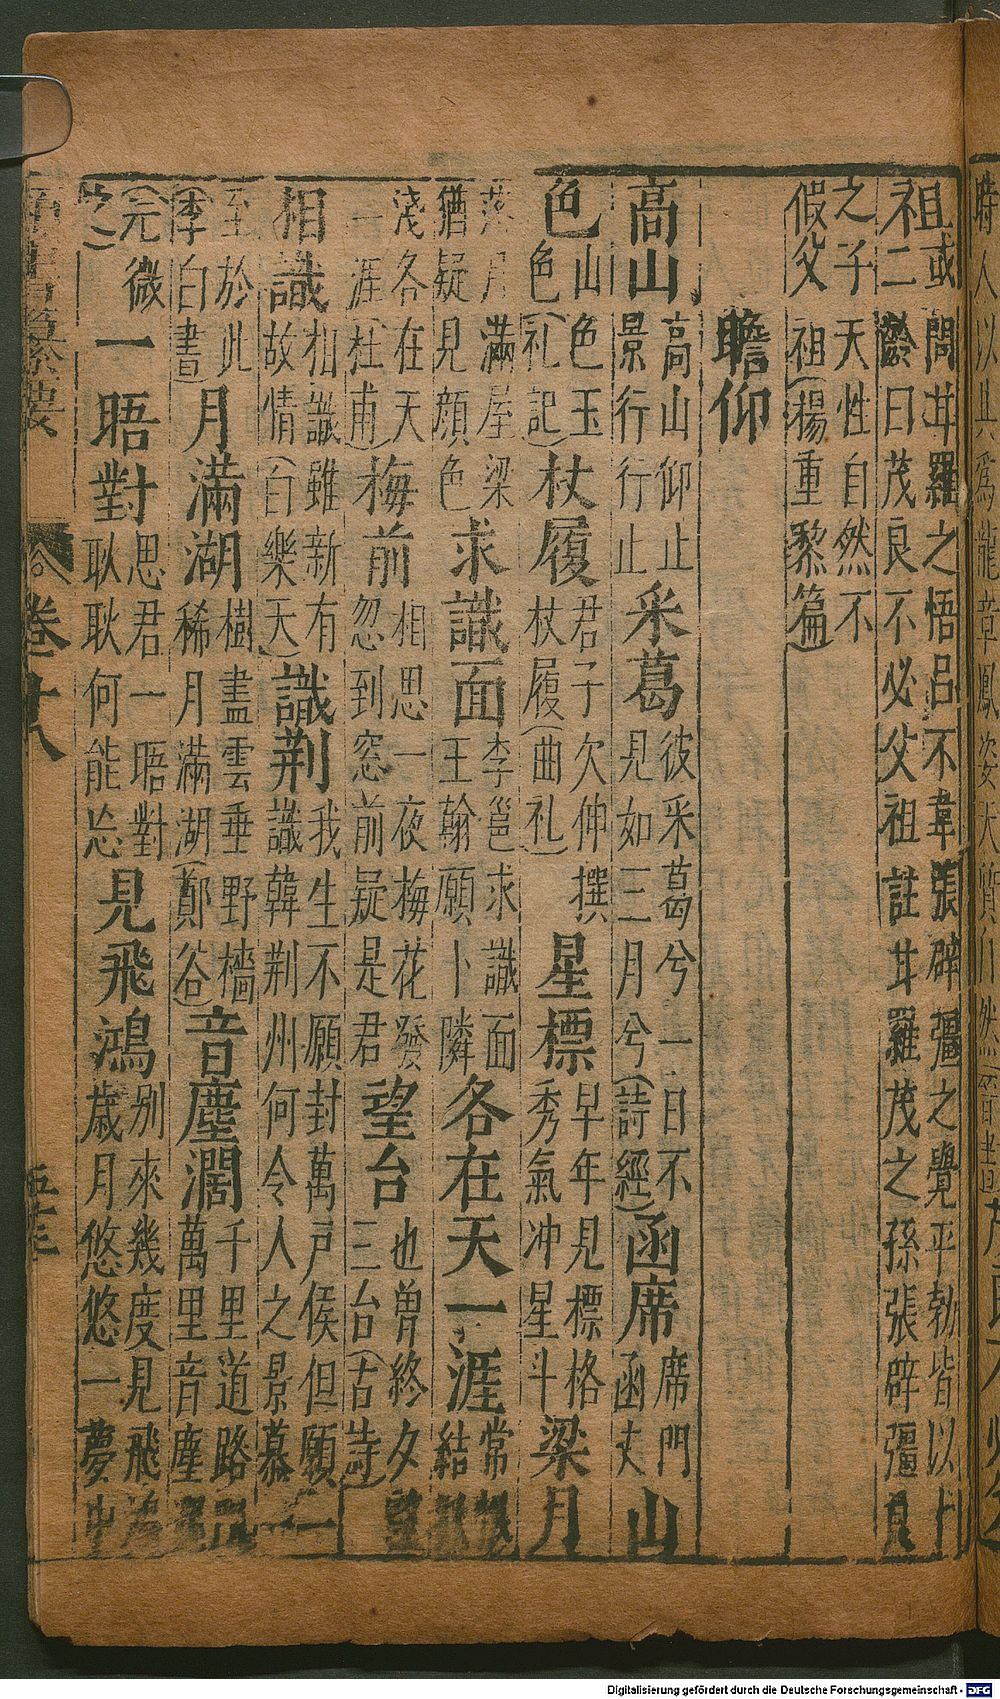 祖或問甘羅之悟呂不韋張辟彊之覺平勃皆以
二齡曰茂良不必父祖註甘羅茂之孫張辟彊良
之子天性自然不
假父祖(楊重黎篇)
瞻仰
高山 高山仰止
景行行止 采葛 彼采葛兮一日不
見如三月兮(詩經) 函席 席門
函丈 山
色 山色玉
色(礼記) 杖履 君子欠伸撰
杖履(曲礼) 星標 早年見標格
秀氣冲星斗 梁月
落月滿屋梁
猶疑見顔色 求識面 李邕求識面
王翰願卜隣 各在天一涯 常
結
淺各在天
一涯(杜甫) 梅前 相思一夜梅花發
忽到窓前疑是君 望台 也曾終夕望
三台(古詩)
相識 相識雖新有
故情(白樂天) 識荆 我生不願封萬戸侯但願一
識韓荆州何令人之景慕一
至於此
(李白書) 月滿湖 樹盡雲垂野檣
稀月滿湖(鄭谷) 音塵濶 千里道路
萬里音塵
(元微
之) 一晤對 思君一晤對
耿耿何能忘 見飛鴻 别來幾度見飛鴻
歲月悠悠一夢中
卷十八
五十三
Digitalisierung gefördert durch die Deutsche Forschungsgemeinschaft - DFG